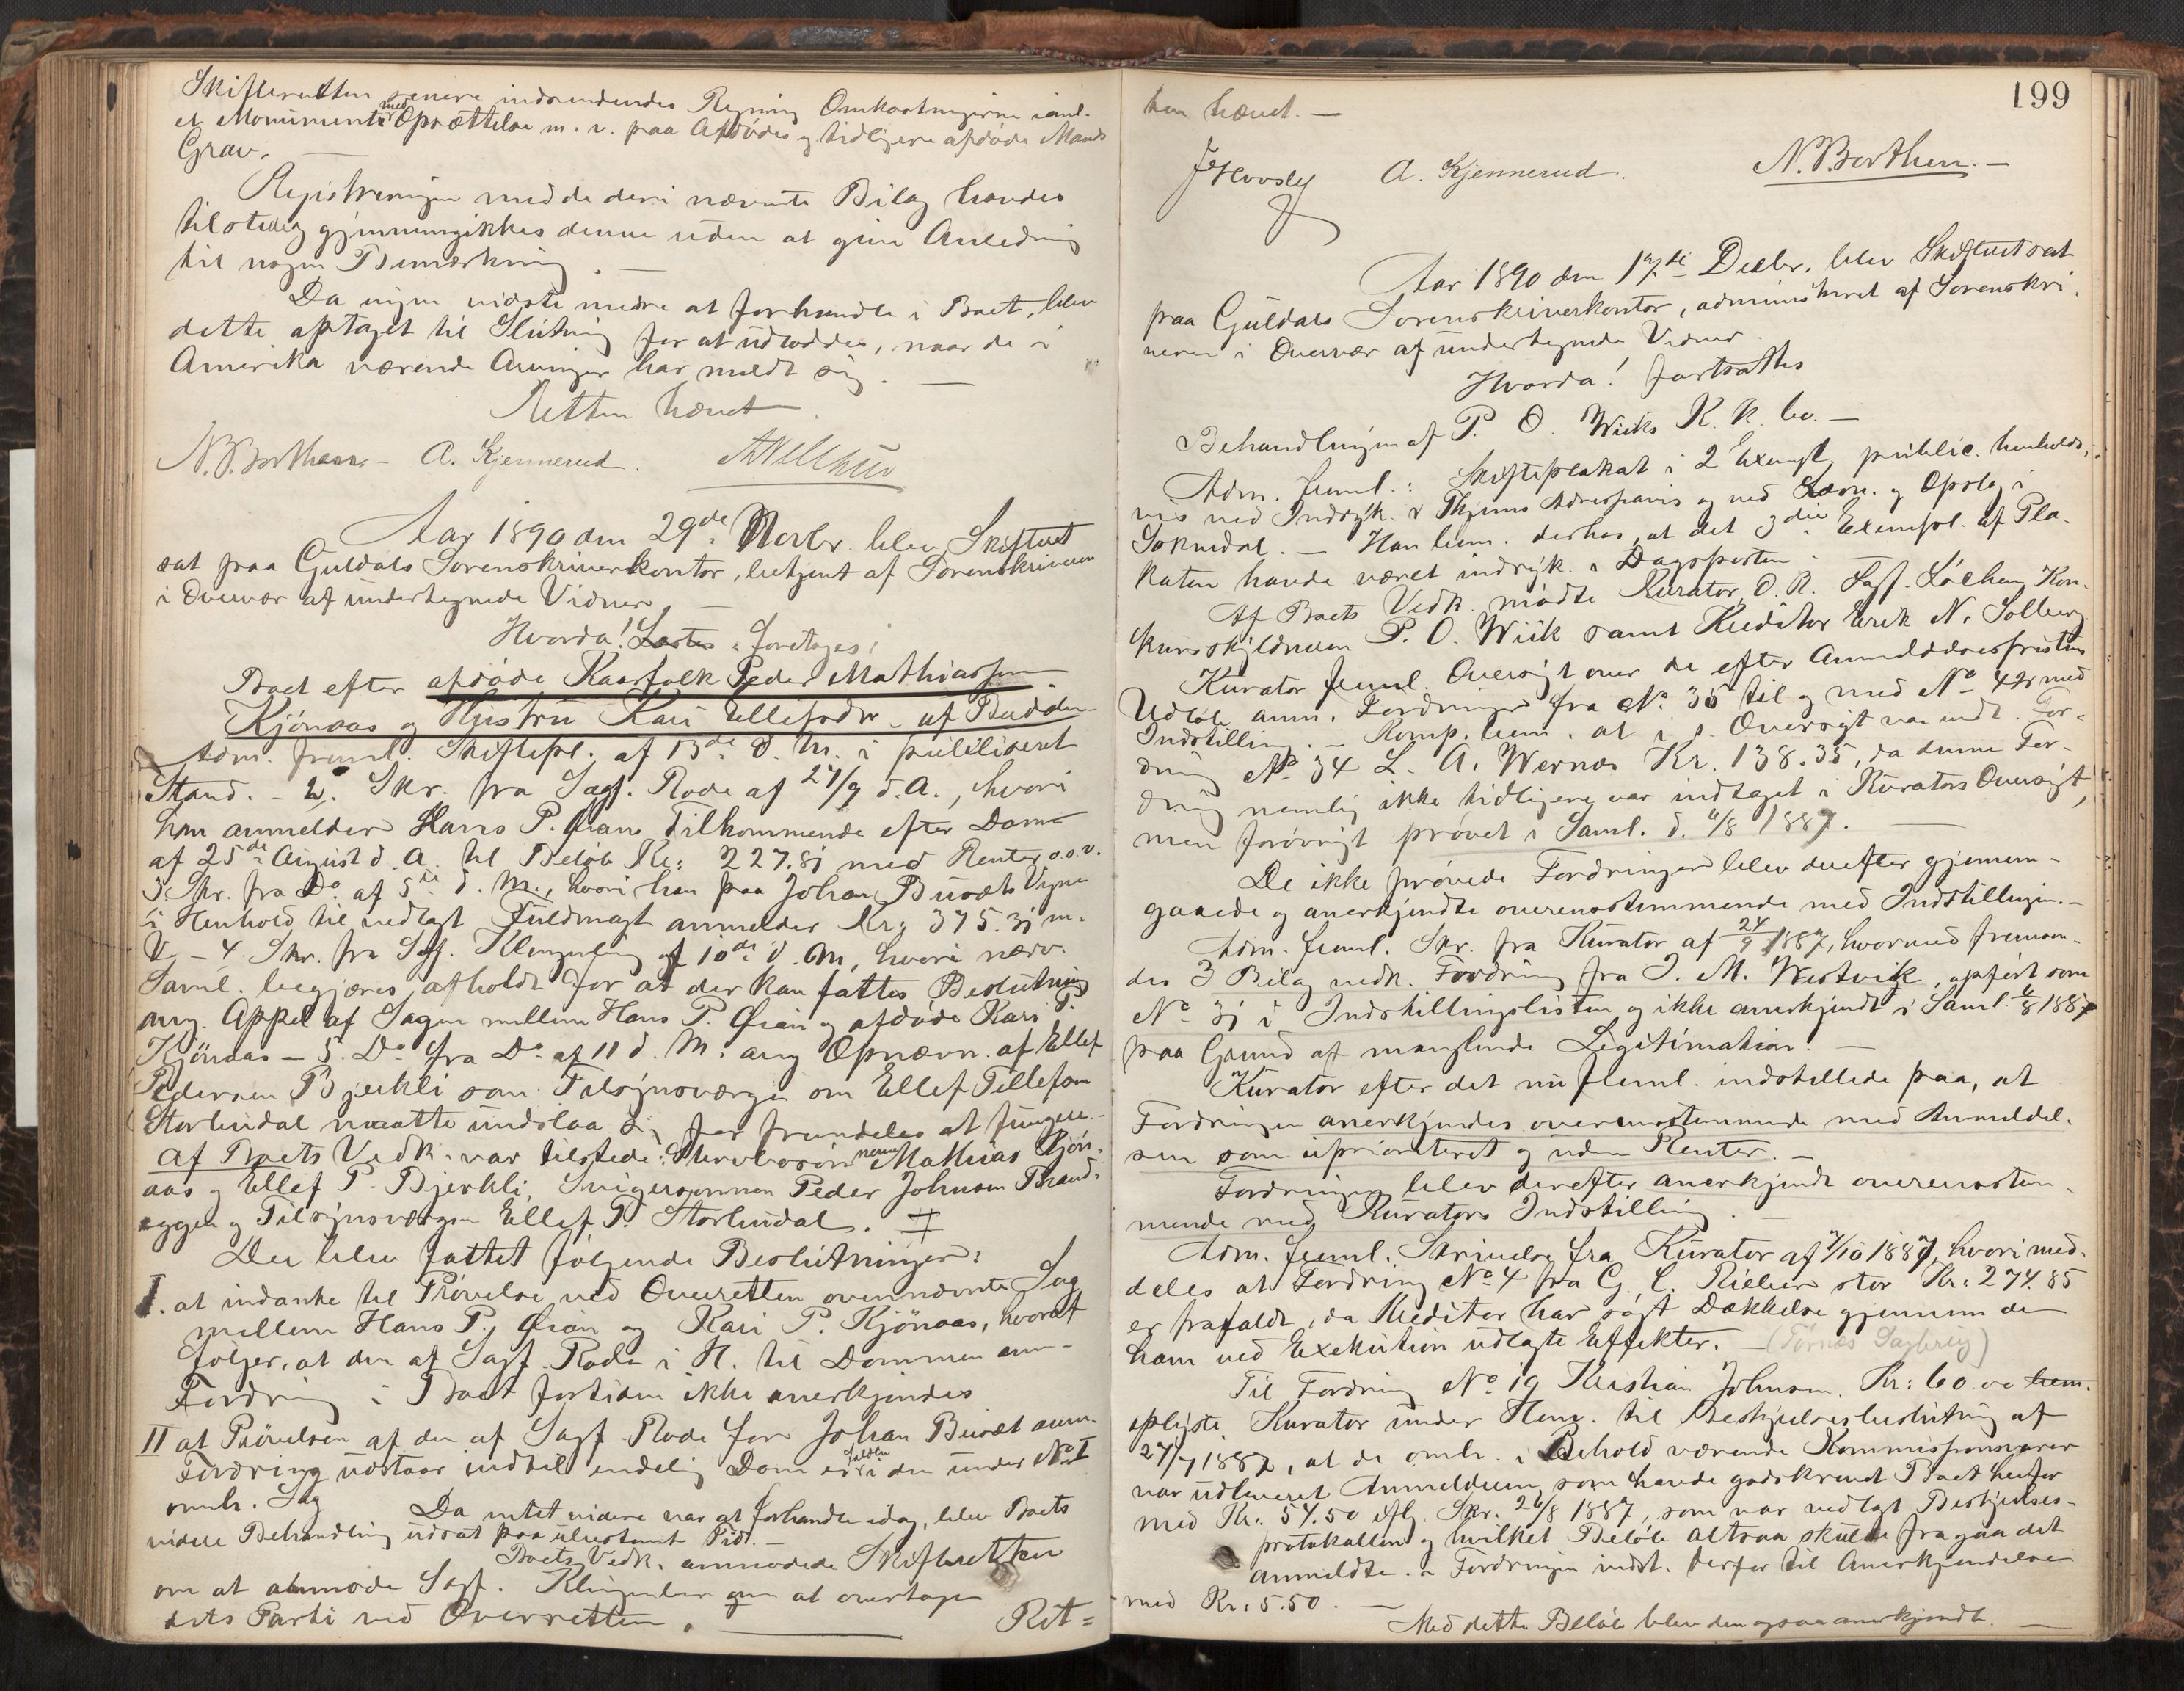 Skifteretten senere indsendendes Regning Omkostningerne ianl.
et Monuments med Oprættelse m. v. paa Afdødes og tidligere afdøde Mands
Grav. —
Registreringen med de deri nævnte Bilag havdes
tilstede og gjennemgikkes denne uden at give Anledning
til nogen Bemærkning. —
Da ingen vidste mere at forhandle i Boet, blev
dette optaget til Slutning for at udloddes, naar de i
Amerika værende Arvinger har meldt sig. —
Retten hævet.
N. B. Borthen — A. Kjennerud.
Aar 1890 den 29de Novbr. blev Skifteret
sat paa Guldals Sorenskriverkontor, betjent af Sorenskriveren
i Overvær af undertegnede Vidner. —
Hvorda! Lastes foretoges:
Boet efter afdøde Kaarfolk Peder Mathiassen
Kjönaas og Hustru Kari Ellefsdr. af Budden
Adm. freml. Skiftepl. af 13de d. M. i publiceret
Stand. — 2. Skr. fra Sagf. Rode af 27/9 d. A., hvori
han anmelder Hans P. Øians Tilkommende efter Dom
af 25de August d. A. til Beløb Kr: 227.81 med Renter o.s.v.
3. Skr. fra Do af 5te d. M., hvori han paa Johan Buséts Vegne
i Henhold til vedlagt Fuldmagt anmelder Kr: 375.31 m.
V. — 4. Skr. fra Sagf. Klingenberg af 10de d. M, hvori nærv.
Saml. begjæres afholdt for at der kan fattes Beslutning
ang. Appel af Sagen mellem Hans P. Øian og afdøde Kari P.
Kjönaas — 5. Do fra Do af 11 d. M. ang Opnævn. af Ellef
Pedersen Bjerkli som Tilsynsværge om Ellef Tillefsen
Storlindal maatte undslaa sig for fremdeles at fungere. —
Af Boets Vedk. var tilstede: Stervbosön nerne Mathias Kjön-
aas og Ellef P. Bjerkli, Svigersønnen Peder Johnsen Brand-
eggen og Tilsynsværgen Ellef T. Storlindal. ╪
Der blev fattet følgende Beslutninger:
I. at indanke til Prövelse ved Overretten ovennævnte Sag
mellem Hans P. Øian og Kari P. Kjönaas, hvoraf
følger, at den af Sagf. Rode i H. til Dommen anm.
Fordring i Boet fortiden ikke anerkjendes
II at Prövelsen af den af Sagf. Rode for Johan Buset anm.
Fordring udstaar indtil endelig Dom er falden i den under No I
omh. Sag Da intet videre var at forhandle idag, blev Boets
videre Behandling udsat paa ubestemt Tid. —
Boets Vedk. anmodede Skifteretten
om at anmode Sagf. Klingenberg om at overtage
dets Parti ved Overretten. — Ret=
199
ten hævet. —
A. Kjennerud. N. B. Borthen. —
Aar 1890 den 17de Decbr. blev Skifteret sat
paa Guldals Sorenskriverkontor, administreret af Sorenskri-
veren i Overvær af undertegnede Vidner.
Hvorda! fortsattes
Behandlingen af P. O. Wiiks K. k. bo. —
Adm. freml.: Skifteplakat i 2 Exempl, public. henholds-
vis ved Indryk. i Thjems Adresseavis og ved Læsn. og Opslag i
Soknedal. — Han bem. derhos, at det 3die Exempl. af Pla-
katen havde været indryk. i Dagsposten
Af Boets Vedk. mødte Kurator, O. R. Sagf. Löchen, Kon-
kursskyldneren P. O. Wiik samt Kreditor Erik N. Solberg
Kurator freml. Oversigt over de efter Anmeldelsesfristens
Udløb anm. Fordringer fra No 35 til og med No 42 med
Indstilling. — Komp. bem. at i s. Oversigt var indt. For-
dring No 34 L. A. Wernes Kr. 138.35, da denne For-
dring nemlig ikke tidligere var indtaget i Kurators Oversigt,
men forövrigt prövet i Saml. d. 6/8 1887. —
De ikke prövede Fordringer blev derefter gjennem-
gaaede og anerkjendte overensstemmende med Indstillingen. —
Adm. freml. Skr. fra Kurator af 24/9 1887, hvormed fremsen-
des 3 Bilag vedk. Fordring fra J. M. Westvik, opført som
No 31 i Indstillingslisten og ikke anerkjendt i Saml. 6/8 1887
paa Grund af manglende Legitimation. —
Kurator efter det nu freml. indstillede paa, at
Fordringen anerkjendes overensstemmende med Anmeldel-
sen som uprioriteret og uden Renter. —
Fordringen blev derefter anerkjendt overensstem-
mende med Kurators Indstilling. —
Adm. freml. Skrivelse fra Kurator af 7/10 1887, hvori med-
deles at Fordring No 4 fra G. C. Rieber stor Kr. 274.85
er frafaldt, da Kreditor har søgt Dækkelse gjennem de
ham ved Exekution udlagte Effekter. — (Törnes Sagbrug)
Til Fordring No 19 Kristian Johnsen, Kr: 60.00 bem.
oplyste Kurator under Henv. til Bestyrelsesbeslutning af
27/7 1887, at de omh. i Behold værende Kommissionsvarer
var udleveret Anmelderen, som havde godskrevet Boet herfor
med Kr. 54.50 ifl. Skr. 26/8 1887, som var vedlagt Bestyrelses-
protokollen og hvilket Beløb altsaa skulde fragaa det
anmeldte. — Fordringen indst. derfor til Anerkjendelse
med Kr. 5.50. —
Med dette Beløb blev den ogsaa anerkjendt. —